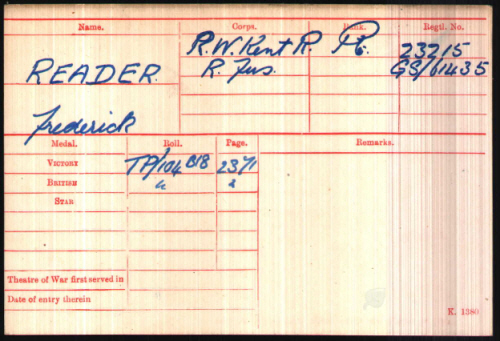 Name. Corps. Rank. Regtl. No.
R.W. Kent R. Pte. 23215
READER. R. Fus. GS/61435
Frederick
Medal. Roll. Page. Remarks.
VICTORY TP/104 B18 2371
BRITISH " "
STAR
Theatre of War first served in
Date of entry therein
K. 1380